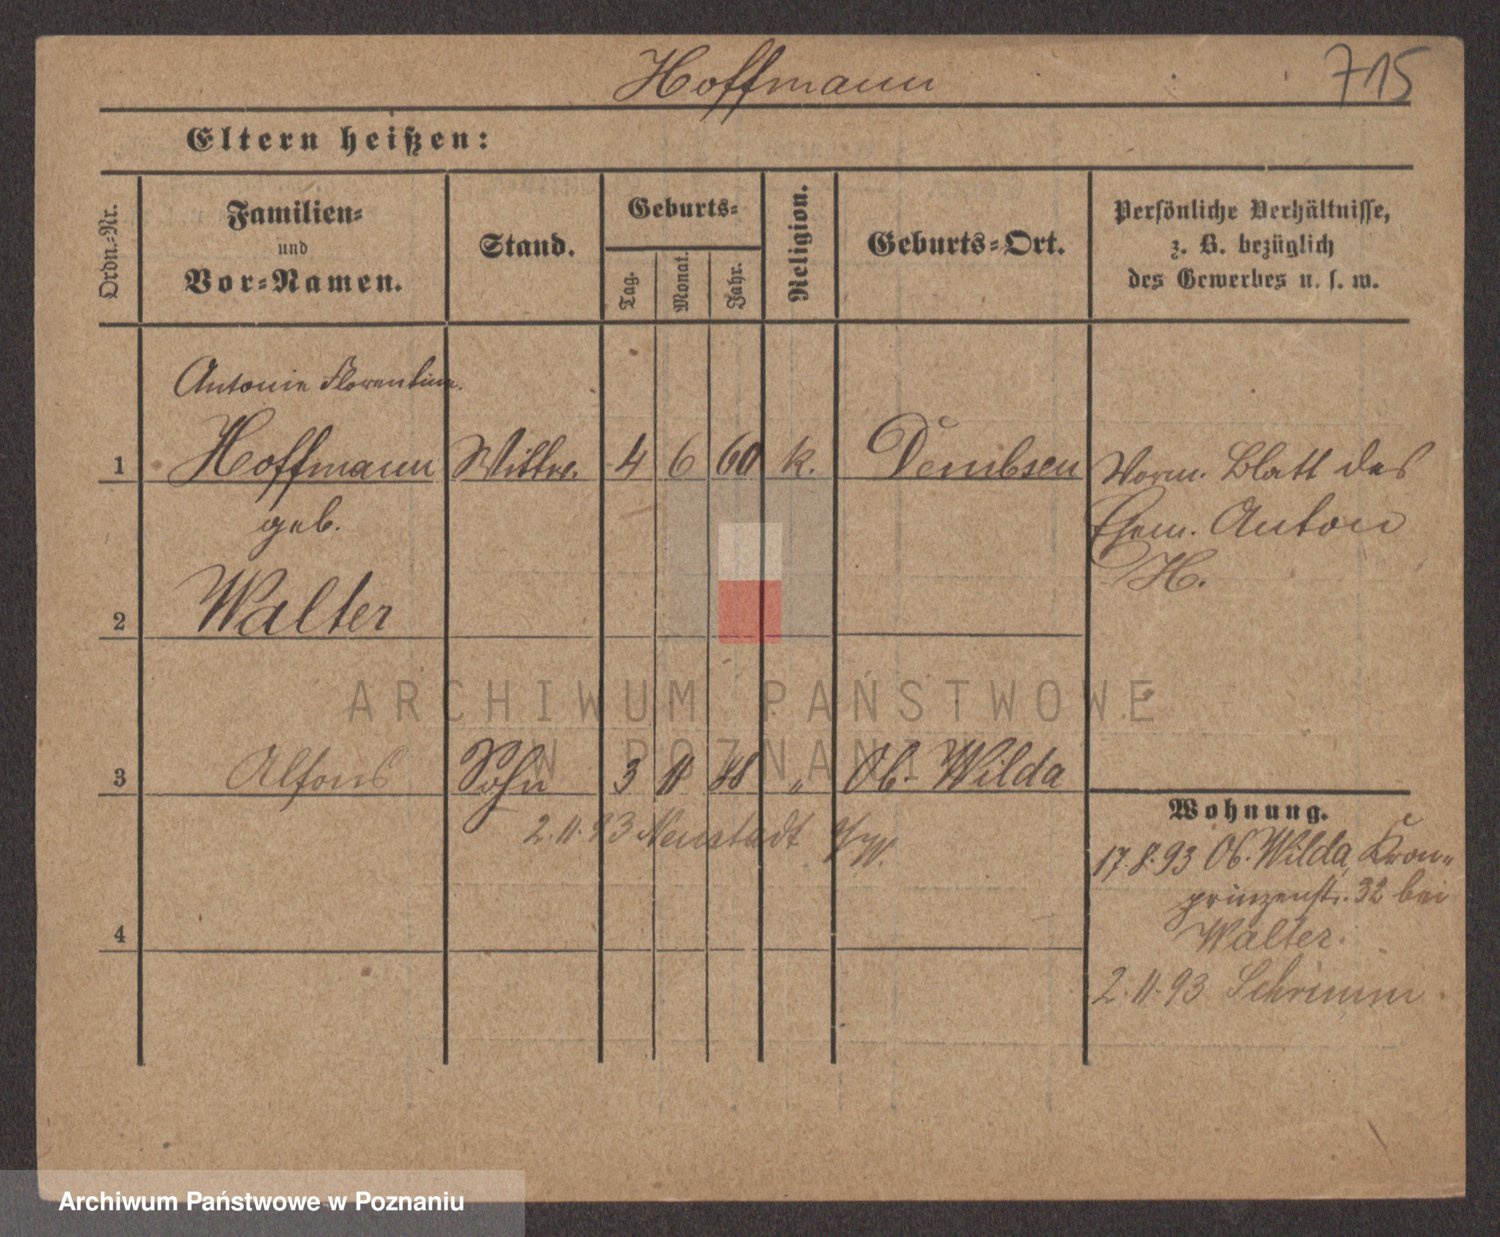 Hoffmann
715
Eltern heißen:
Ordn.-Nr.
Familien-
und
Vor-Namen.
Stand.
Geburts-
Tag.
Monat.
Jahr.
Religion.
Geburts-Ort.
Persönliche Verhältnisse,
z. B. bezüglich
des Gewerbes u. s. w.
Antonie Florentine.
1 Hoffmann Wittwe. 4 6 60 k. Dembsen
geb.
2 Walter
Vorm. Blatt des
Ehem. Anton
H.
ARCHIWUM PAŃSTWOWE
W POZNANIU
3 Alfons Sohn 3 11 88 " Ob. Wilda
2.11.93 Neustadt a/W.
4
Wohnung.
17.8.93 Ob. Wilda, Kron-
prinzenstr. 32 bei
Walter.
2.11.93 Schrimm.
Archiwum Państwowe w Poznaniu